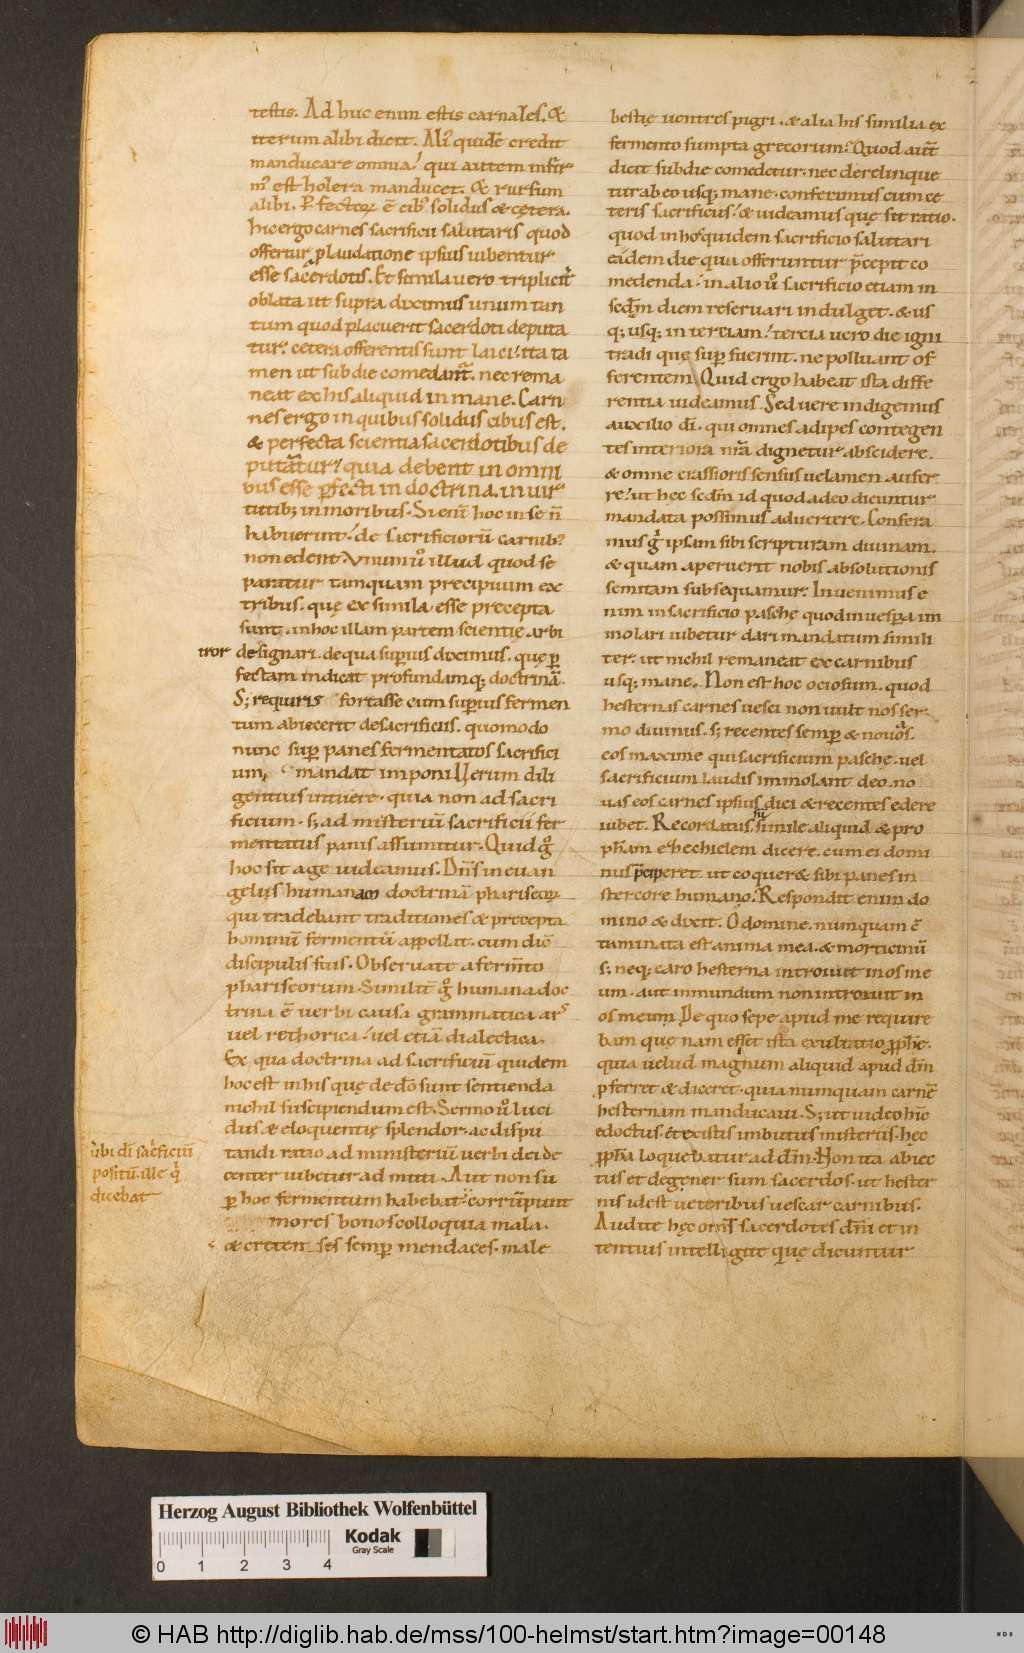 testis. Ad huc enim estis carnales. &
iterum alibi dicit. Ali' quidē credit
manducare omnia! qui autem infir
m' est holera manducet. & rursum
alibi. P̲fectoꝝ ē cib' solidus & cętera.
hic ergo carnes sacrificii salutaris quod
offertur p laudatione ipsius iubentur
esse sacerdotis. Et simila uero triplicit̄
oblata ut supra diximus unum tan
tum quod placuerit sacerdoti deputa
tur. cetera offerentis sunt laici! ita ta
men ut sub die comedantur. nec rema
neat ex his aliquid in mane. Carn
nes ergo in quibus solidus cibus est.
& perfecta scientia sacerdotibus de
putantur! quia debent in omni
bus esse p̲fecti in doctrina. in uir
tutib; in moribus. Si eni hoc in se n̄
habuerint! de sacrificiorū carnib'
non edent. Vnum ů illud quod se
paratur tanquam precipuum ex
tribus. quę ex simila esse precepta
sunt. in hoc illam partem scientię arbi
tror designari. de qua sup̲ius diximus. quę p̲
fectam indicat profundamq; doctrinā.
S; requiris fortasse cum sup̲ius fermen
tum abiecerit de sacrificiis. quomodo
nunc sup̲ panes fermentatos sacrifici
um mandat imponi Verum dili
gentius intuere. quia non ad sacri
ficium. s; ad misteriū sacrificii fer
mentatus panis assumitur. Quid g̊
hoc sit age uideamus. Dn̄s in euan
gelių humanam doctrinā phariseoꝝ
qui tradebant traditiones & precepta
hominū fermentū appellat. cum dic̄
discipulis suis. Obseruate a ferm̄to
phariseorum. Similit̄ g̊ humana doc
trina ē uerbi causa grammatica ars
uel rethorica! uel etiā dialectica.
Ex qua doctrina ad sacrificiū quidem
hoc est in his quę de dō sunt sentienda
nichil suscipiendum est. Sermo ů luci
dus & eloquentię splendor. ac dispu
tandi ratio ad ministeriū uerbi dei de
center iubetur ad mitti. Aut non su
p̲ hoc fermentum habebat. corrūpunt
mores bonos colloquia mala.
& creten ses semp̲ mendaces. male
ubi dī sacrficiū
positū. ille q̇
dicebat
bestię uentres pigri. & alia his similia ex
fermento sumpta grecorum! Quod aūt
dicit sub die comedetur. nec derelinque
tur ab eo usq; mane. conferimus cum ce
teris sacrificiis! & uideamus quę sit ratio.
quod in hoc quidem sacrificio salutari
eādem die qua offeruntur p̄cepit co
medenda! in alio ů sacrificio etiam in
scdm̄ diem reseruari indulget. & us
q; usq; in tertiam! tercia uero die igni
tradi quę sup̲ fuerint. ne polluant of
ferentem. Quid ergo habeat ista diffe
rentia uideamus. Sed uere indigemus
auxilio dī. qui omnes adipes contegen
tes interiora nr̄a dignetur abscidere.
& omne crassioris sensus uelamen aufer
re! ut hęc scdm̄ id quod a deo dicuntur
mandata possimus aduertere. Confera
mus g̊ ipsam sibi scripturam diuinam.
& quam aperuerit nobis absolutionis
semitam subsequamur. Inuenimus e
nim in sacrificio paschę quod in uesp̲a im
molari iubetur dari mandatum simili
ter. ut nichil remaneat ex carnibus
usq; mane. Non est hoc ociosum. quod
hesternas carnes uesci non uult nos ser
mo diuinus. s; recentes semp̲ & nouas.
eos maxime qui sacrificium pasche. uel
sacrificium laudis immolant deo. no
uas eos carnes ipsius diei & recentes edere
iubet. Recordatus sū simile aliquid & pro
ph̄am ezhechielem dicere. cum ei domi
nus p̄ciperet ut coquer& sibi panes in
stercore humano. Respondit enim do
mino & dixit. O domine. numquam c̄
taminata est anima mea. & morticinū
s; neq; caro hesterna introiuit in os me
um. aut inmundum non introiuit in
os meum. De quo sepe apud me require
bam quę nam esset ista exultatio p̲ph̄e.
quia uelud magnum aliquid apud dn̄m
p̲ferret & diceret. quia numquam carnē
hesternam manducaui. S; ut uideo hinc
edoctus. & ex istis imbutus misteriis. hęc
p̲ph̄a loquebatur ad dn̄m. Non ita abiec
tus et degener sum sacerdos. ut hester
nis id est ueteribus uescar carnibus.
Audite hęc om̄s sacerdotes dn̄i et in
tentius intelligite quę dicuntur
Herzog August Bibliothek Wolfenbüttel
Kodak
Gray Scale
0 1 2 3 4
© HAB http://diglib.hab.de/mss/100-helmst/start.htm?image=00148